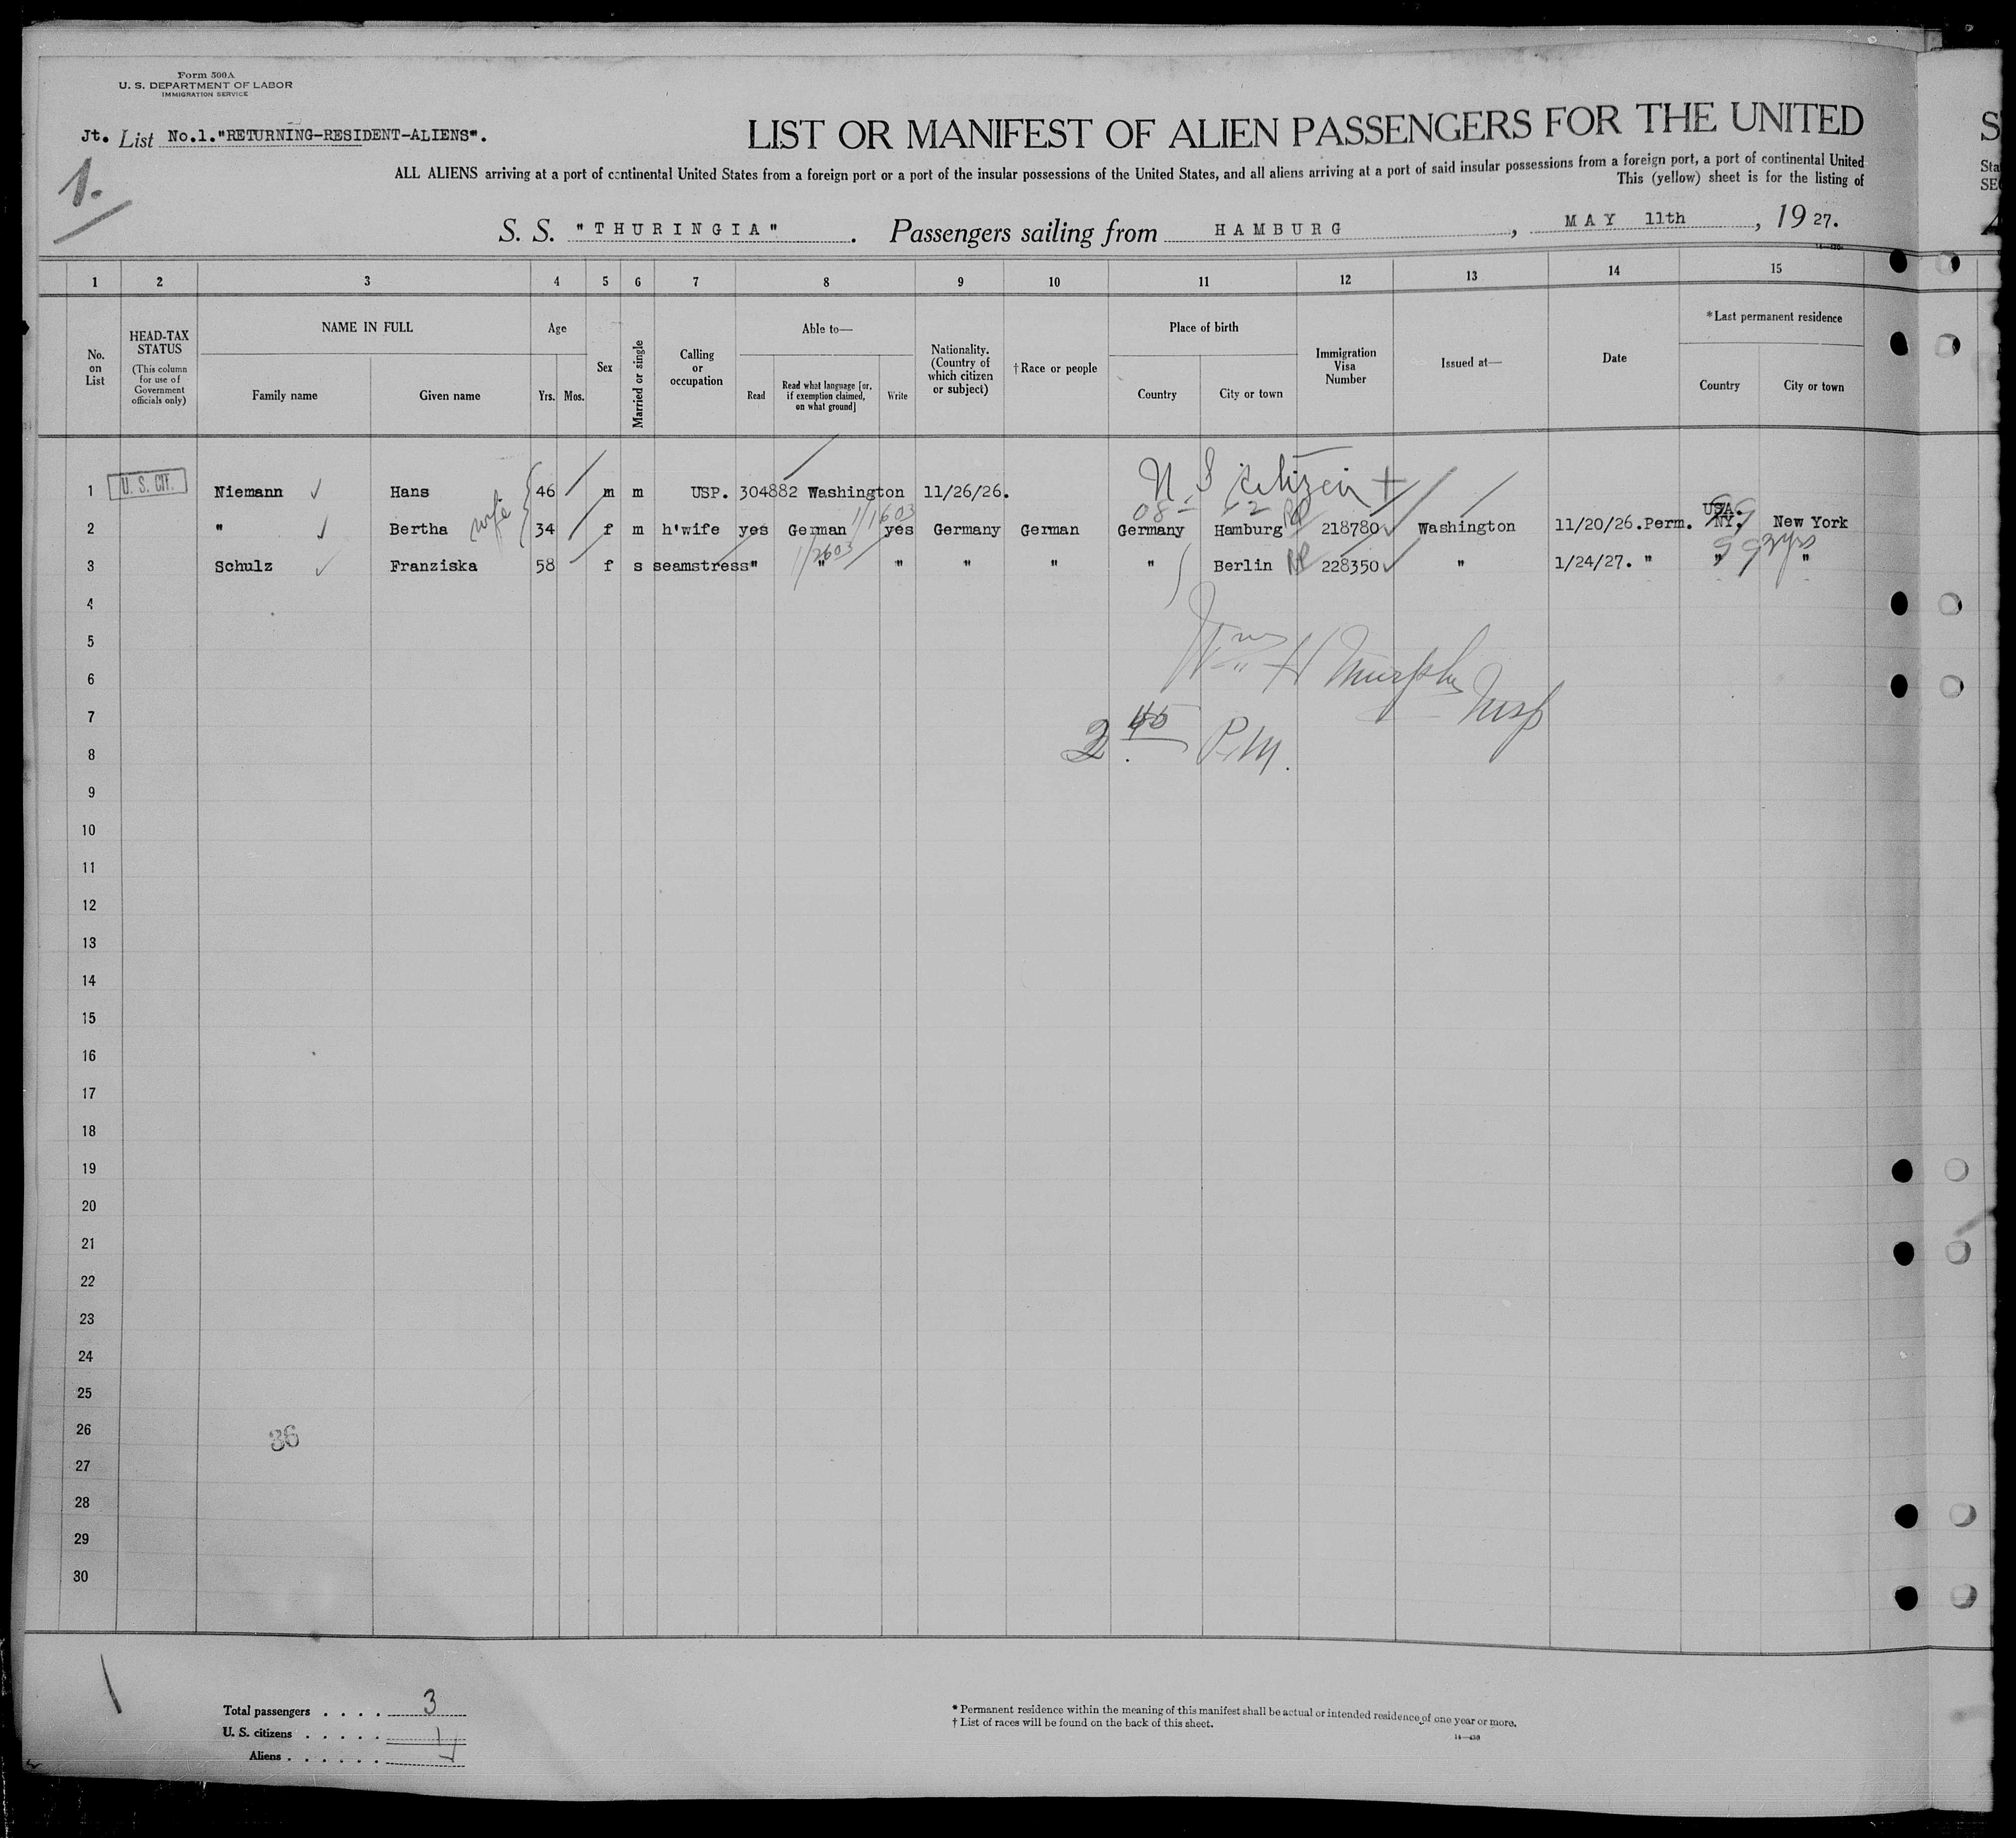 Form 500A
U. S. DEPARTMENT OF LABOR
IMMIGRATION SERVICE
Jt. List No.1."RETURNING-RESIDENT-ALIENS".
1.
LIST OR MANIFEST OF ALIEN PASSENGERS FOR THE UNITED
ALL ALIENS arriving at a port of continental United States from a foreign port or a port of the insular possessions of the United States, and all aliens arriving at a port of said insular possessions from a foreign port, a port of continental United
This (yellow) sheet is for the listing of
S. S. "THURINGIA". Passengers sailing from HAMBURG, MAY 11th, 1927.
1 2 3 4 5 6 7 8 9 10 11 12 13 14 15
No. on List
HEAD-TAX STATUS
(This column for use of Government officials only)
NAME IN FULL
Family name Given name
Age
Yrs. Mos.
Sex
Married or single
Calling or occupation
Able to—
Read Read what language [or, if exemption claimed, on what ground] Write
Nationality. (Country of which citizen or subject)
†Race or people
Place of birth
Country City or town
Immigration Visa Number
Issued at—
Date
*Last permanent residence
Country City or town
1 U. S. CIT. Niemann Hans 46 m m USP. 304882 Washington 11/26/26. U S citizen
2 " Bertha wife 34 f m h'wife yes German yes Germany German Germany Hamburg 218780 Washington 11/20/26.Perm. USA. NY. New York
3 Schulz Franziska 58 f s seamstress " " " " " " Berlin 228350 " 1/24/27. " " "
4
5
6
7
8
9
10
11
12
13
14
15
16
17
18
19
20
21
22
23
24
25
26
27
28
29
30
Wm H Murphy Insp
2 45 P.M.
36
Total passengers . . . . 3
U. S. citizens . . . . . 1
Aliens . . . . . .
* Permanent residence within the meaning of this manifest shall be actual or intended residence of one year or more.
† List of races will be found on the back of this sheet.